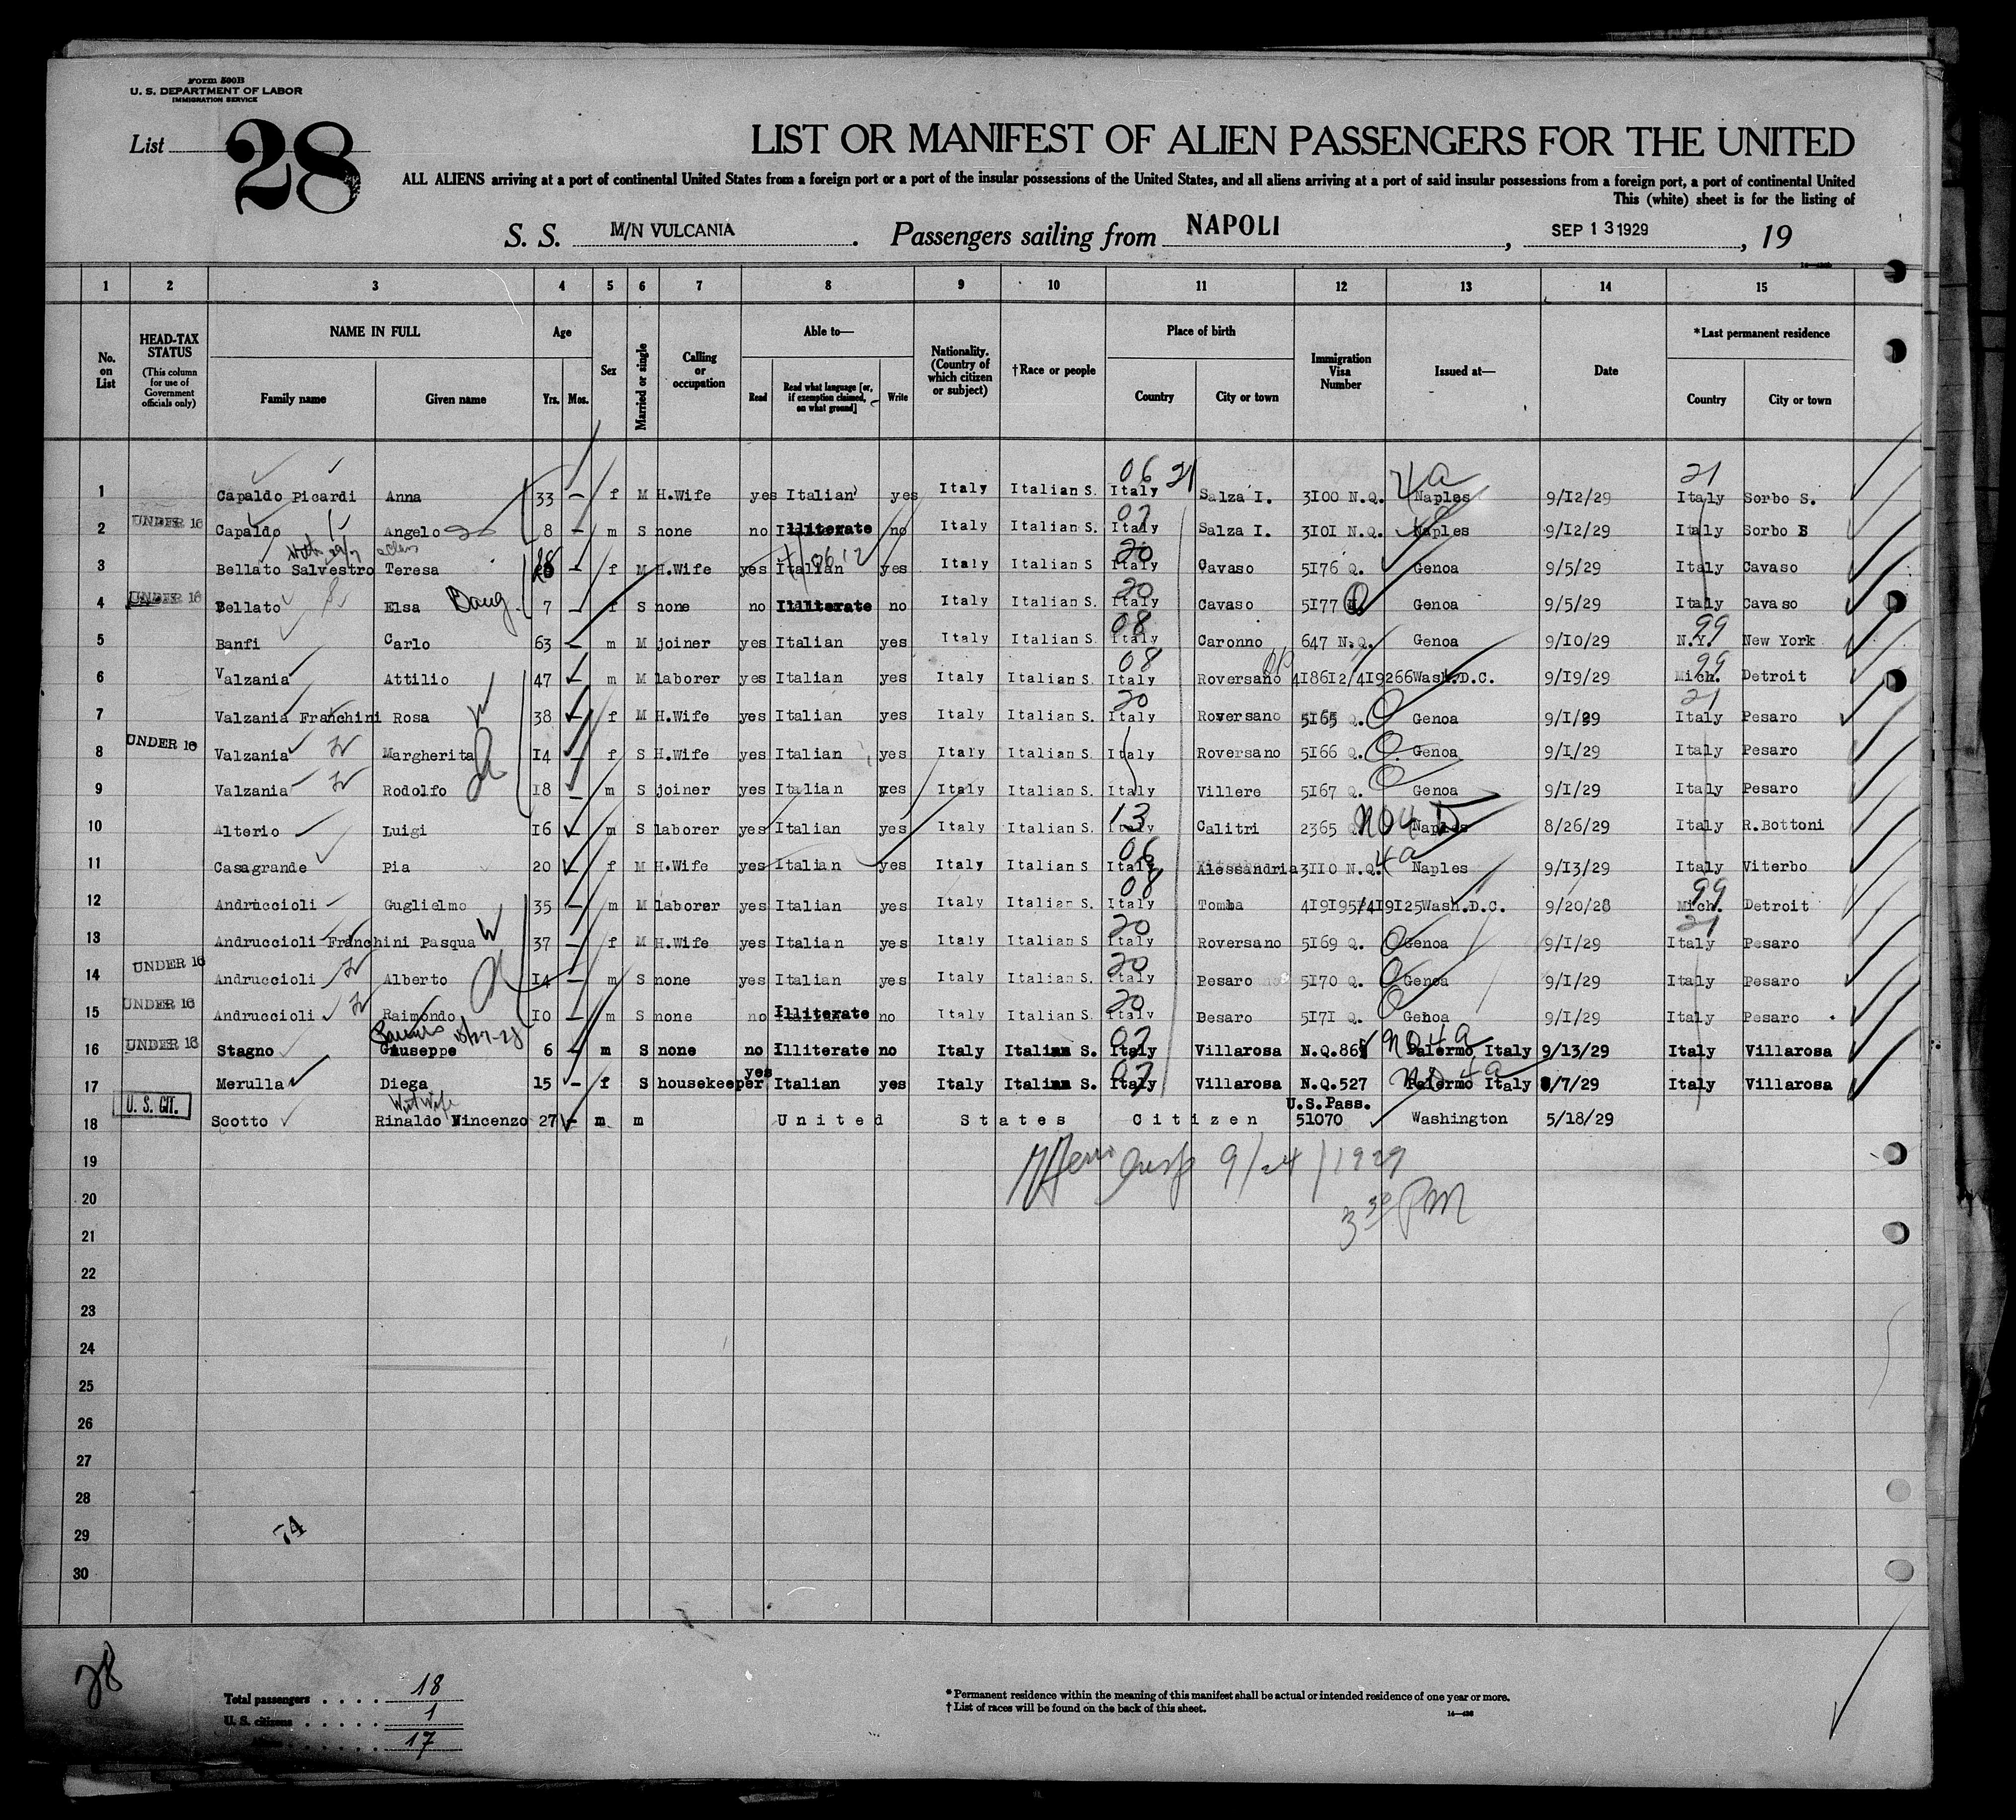 Form 500B
U. S. DEPARTMENT OF LABOR
IMMIGRATION SERVICE
List 28
LIST OR MANIFEST OF ALIEN PASSENGERS FOR THE UNITED
ALL ALIENS arriving at a port of continental United States from a foreign port or a port of the insular possessions of the United States, and all aliens arriving at a port of said insular possessions from a foreign port, a port of continental United
This (white) sheet is for the listing of
S. S. M/N VULCANIA. Passengers sailing from NAPOLI, SEP 13 1929, 19
1 2 3 4 5 6 7 8 9 10 11 12 13 14 15
No. on List
HEAD-TAX STATUS (This column for use of Government officials only)
NAME IN FULL Family name Given name
Age Yrs. Mos.
Sex
Married or single
Calling or occupation
Able to— Read Read what language [or, if exemption claimed, on what ground] Write
Nationality. (Country of which citizen or subject)
†Race or people
Place of birth Country City or town
Immigration Visa Number
Issued at—
Date
*Last permanent residence Country City or town
06 21 4a 21
1 Capaldo Picardi Anna 33 — f M H.Wife yes Italian yes Italy Italian S. Italy Salza I. 3100 N.Q. Naples 9/12/29 Italy Sorbo S.
2 UNDER 16 Capaldo Angelo 8 — m S none no Illiterate no Italy Italian S. Italy Salza I. 3101 N.Q. Naples 9/12/29 Italy Sorbo S
20
3 Bellato Salvestro Teresa — f M H.Wife yes Italian yes Italy Italian S Italy Cavaso 5176 Q. Genoa 9/5/29 Italy Cavaso
20
4 UNDER 16 Bellato Elsa Daug. 7 — f S none no Illiterate no Italy Italian S. Italy Cavaso 5177 Q Genoa 9/5/29 Italy Cavaso
08 99
5 Banfi Carlo 63 — m M joiner yes Italian yes Italy Italian S. Italy Caronno 647 N.Q. Genoa 9/10/29 N.Y. New York
08 99
6 Valzania Attilio 47 — m M laborer yes Italian yes Italy Italian S. Italy Roversano 418612/419266 Wash.D.C. 9/19/29 Mich. Detroit
20 21
7 Valzania Franchini Rosa 38 — f M H.Wife yes Italian yes Italy Italian S. Italy Roversano 5165 Q. Genoa 9/1/29 Italy Pesaro
8 UNDER 16 Valzania Margherita 14 — f S H.Wife yes Italian yes Italy Italian S Italy Roversano 5166 Q. Genoa 9/1/29 Italy Pesaro
9 Valzania Rodolfo 18 — m S joiner yes Italian yes Italy Italian S. Italy Villere 5167 Q. Genoa 9/1/29 Italy Pesaro
13
10 Alterio Luigi 16 — m S laborer yes Italian yes Italy Italian S. Italy Calitri 2365 Naples 8/26/29 Italy R.Bottoni
06 4a
11 Casagrande Pia 20 f M H.Wife yes Italian yes Italy Italian S Italy Alessandria 3110 N.Q. Naples 9/13/29 Italy Viterbo
08 99
12 Andruccioli Guglielmo 35 — m M laborer yes Italian yes Italy Italian S. Italy Tomba 419195/419125 Wash.D.C. 9/20/28 Mich. Detroit
20 21
13 Andruccioli Franchini Pasqua 37 — f M H.Wife yes Italian yes Italy Italian S Italy Roversano 5169 Q. Genoa 9/1/29 Italy Pesaro
20
14 UNDER 16 Andruccioli Alberto 14 — m S none yes Italian yes Italy Italian S. Italy Pesaro 5170 Q. Genoa 9/1/29 Italy Pesaro
20
15 UNDER 16 Andruccioli Raimondo 10 — m S none no Illiterate no Italy Italian S. Italy Besaro 5171 Q. Genoa 9/1/29 Italy Pesaro
16 UNDER 16 Stagno Giuseppe 6 — m S none no Illiterate no Italy Italian S. Italy Villarosa N.Q.86 Palermo Italy 9/13/29 Italy Villarosa
17 Merulla Diega 15 — f S housekeeper yes Italian yes Italy Italian S. Italy Villarosa N.Q.527 Palermo Italy 8/7/29 Italy Villarosa
18 U. S. CIT. Scotto Rinaldo Vincenzo 27 — m m United States Citizen U.S.Pass. 51070 Washington 5/18/29
19 9/24/1929
20 3 30 PM
21
22
23
24
25
26
27
28
29
30
74
28
Total passengers . . . . 18
U. S. citizens . . . . . 1
17
* Permanent residence within the meaning of this manifest shall be actual or intended residence of one year or more.
† List of races will be found on the back of this sheet.